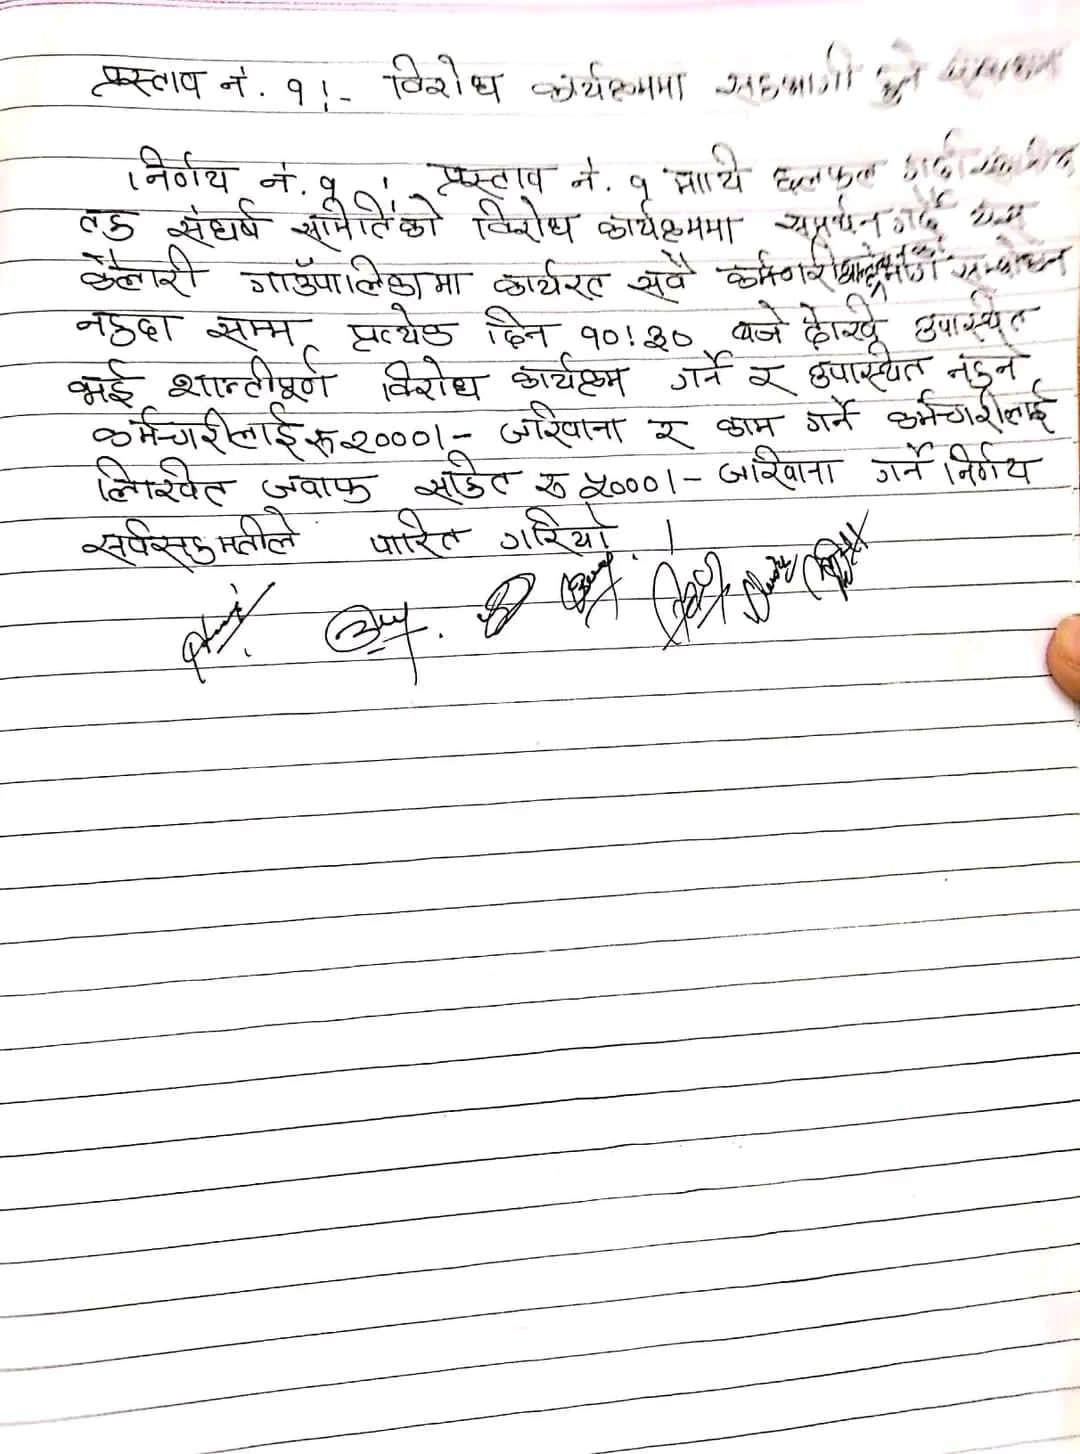 प्रस्ताव नं. १!- विरोध कार्यक्रममा सहभागी हुने
निर्णय नं. १ ! प्रस्ताव नं. १ माथि छलफल गर्दा
तह संघर्ष समितिको विरोध कार्यक्रममा समर्थन गर्दै यस
कैलारी गाउँपालिकामा कार्यरत सवै कर्मचारी सम्बोधन
नहुदा सम्म प्रत्येक दिन १०!३० वजे देखि उपस्थित
भई शान्तीपूर्ण विरोध कार्यक्रम गर्ने र उपस्थित नहुने
कर्मचारीलाई रू २०००।- जरिवाना र काम गर्ने कर्मचारीलाई
लिखित जवाफ सहित रू ५०००।- जरिवाना गर्ने निर्णय
सर्वसहमतीले पारित गरियो ।